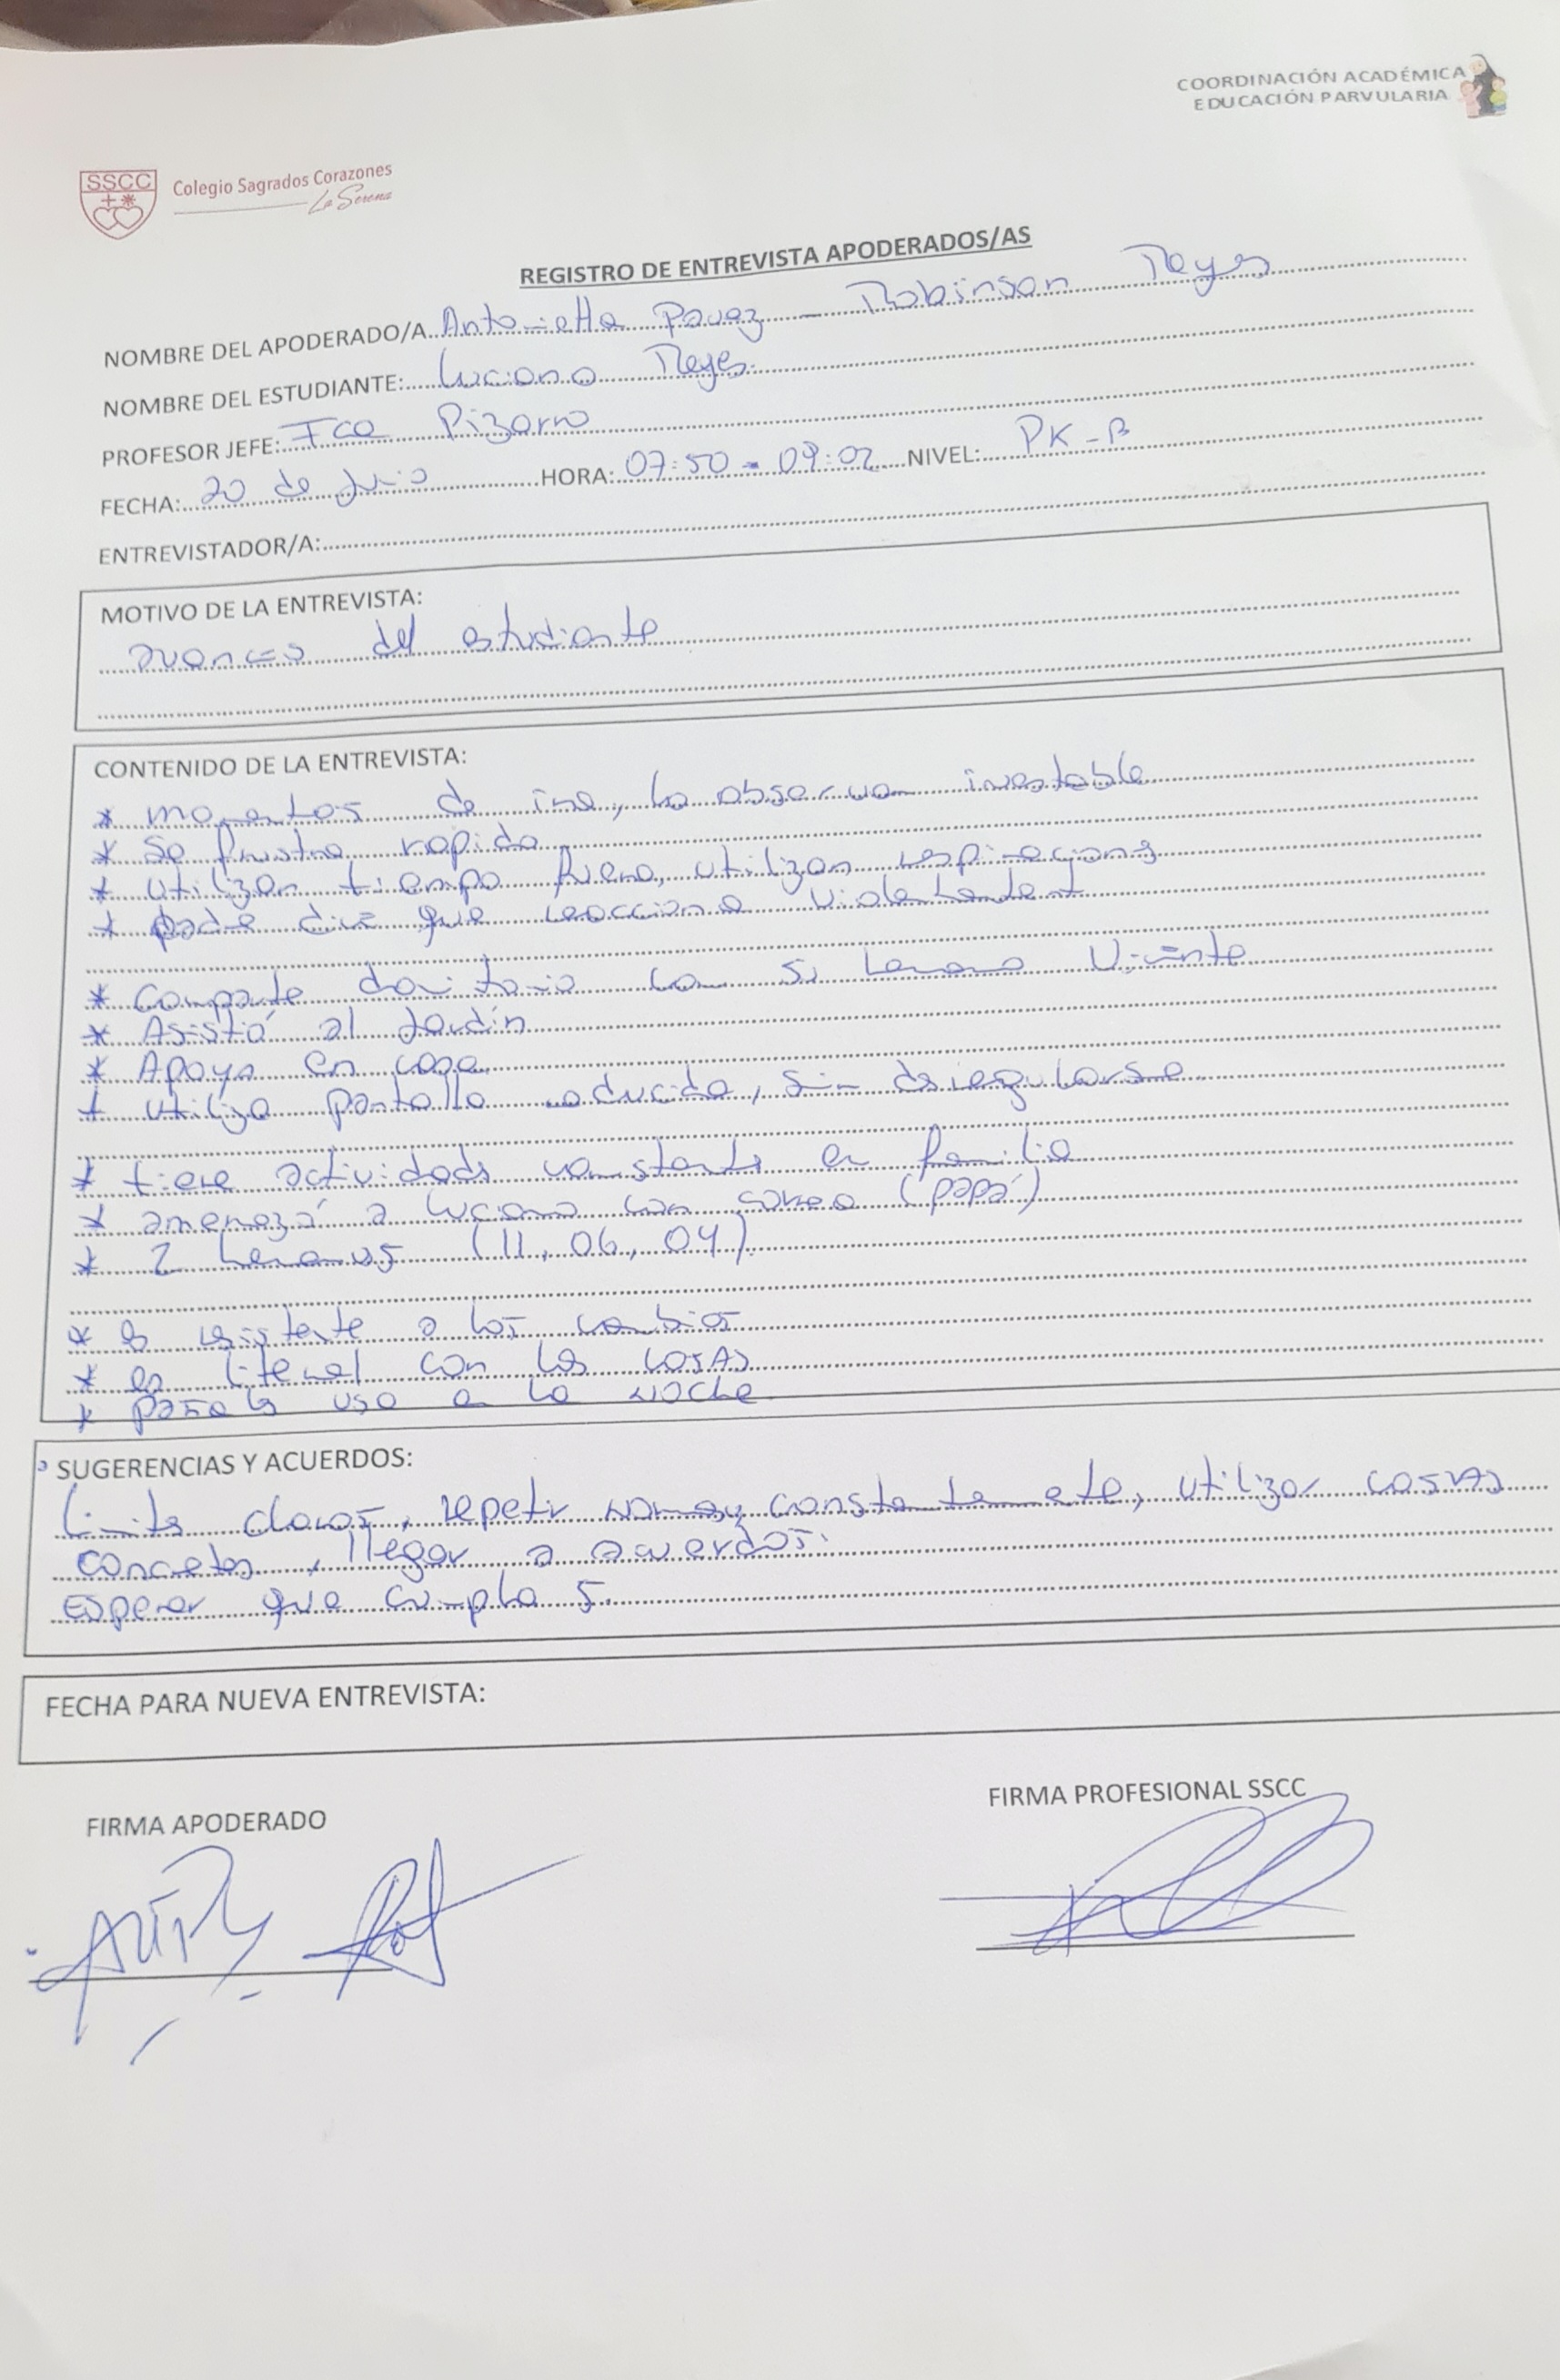 COORDINACIÓN ACADÉMICA
EDUCACIÓN PARVULARIA
SSCC
Colegio Sagrados Corazones
La Serena
REGISTRO DE ENTREVISTA APODERADOS/AS
NOMBRE DEL APODERADO/A Antonietta Pavez - Robinson Reyes
NOMBRE DEL ESTUDIANTE: Luciano Reyes.
PROFESOR JEFE: Fca Pizarro
FECHA: 20 de HORA: 07:50 - 09:02 NIVEL: PK-B
ENTREVISTADOR/A:
MOTIVO DE LA ENTREVISTA:
avances del estudiante
CONTENIDO DE LA ENTREVISTA:
* momentos de ira, lo observan inestable
* Se frustra rapido
* utilizan tiempo fuera, utilizan respiraciones
* padre dice que reacciona
* Comparte dormitorio con su hermano Vicente
* Asistió al Jardín
* Apoya en casa
* utiliza pantalla reducida, sin desregularse
* tiene actividads constante en familia
* amenazó a Luciano con correa (papá)
* 2 hermanos (11, 06, 04)
* es resistente a los cambios
* es literal con las cosas
* pañales uso en la noche
SUGERENCIAS Y ACUERDOS:
Limites claros, repetir normas constantemente, utilizar cosas
concretas, llegar a acuerdos.
Esperar que cumpla 5.
FECHA PARA NUEVA ENTREVISTA:
FIRMA APODERADO
FIRMA PROFESIONAL SSCC